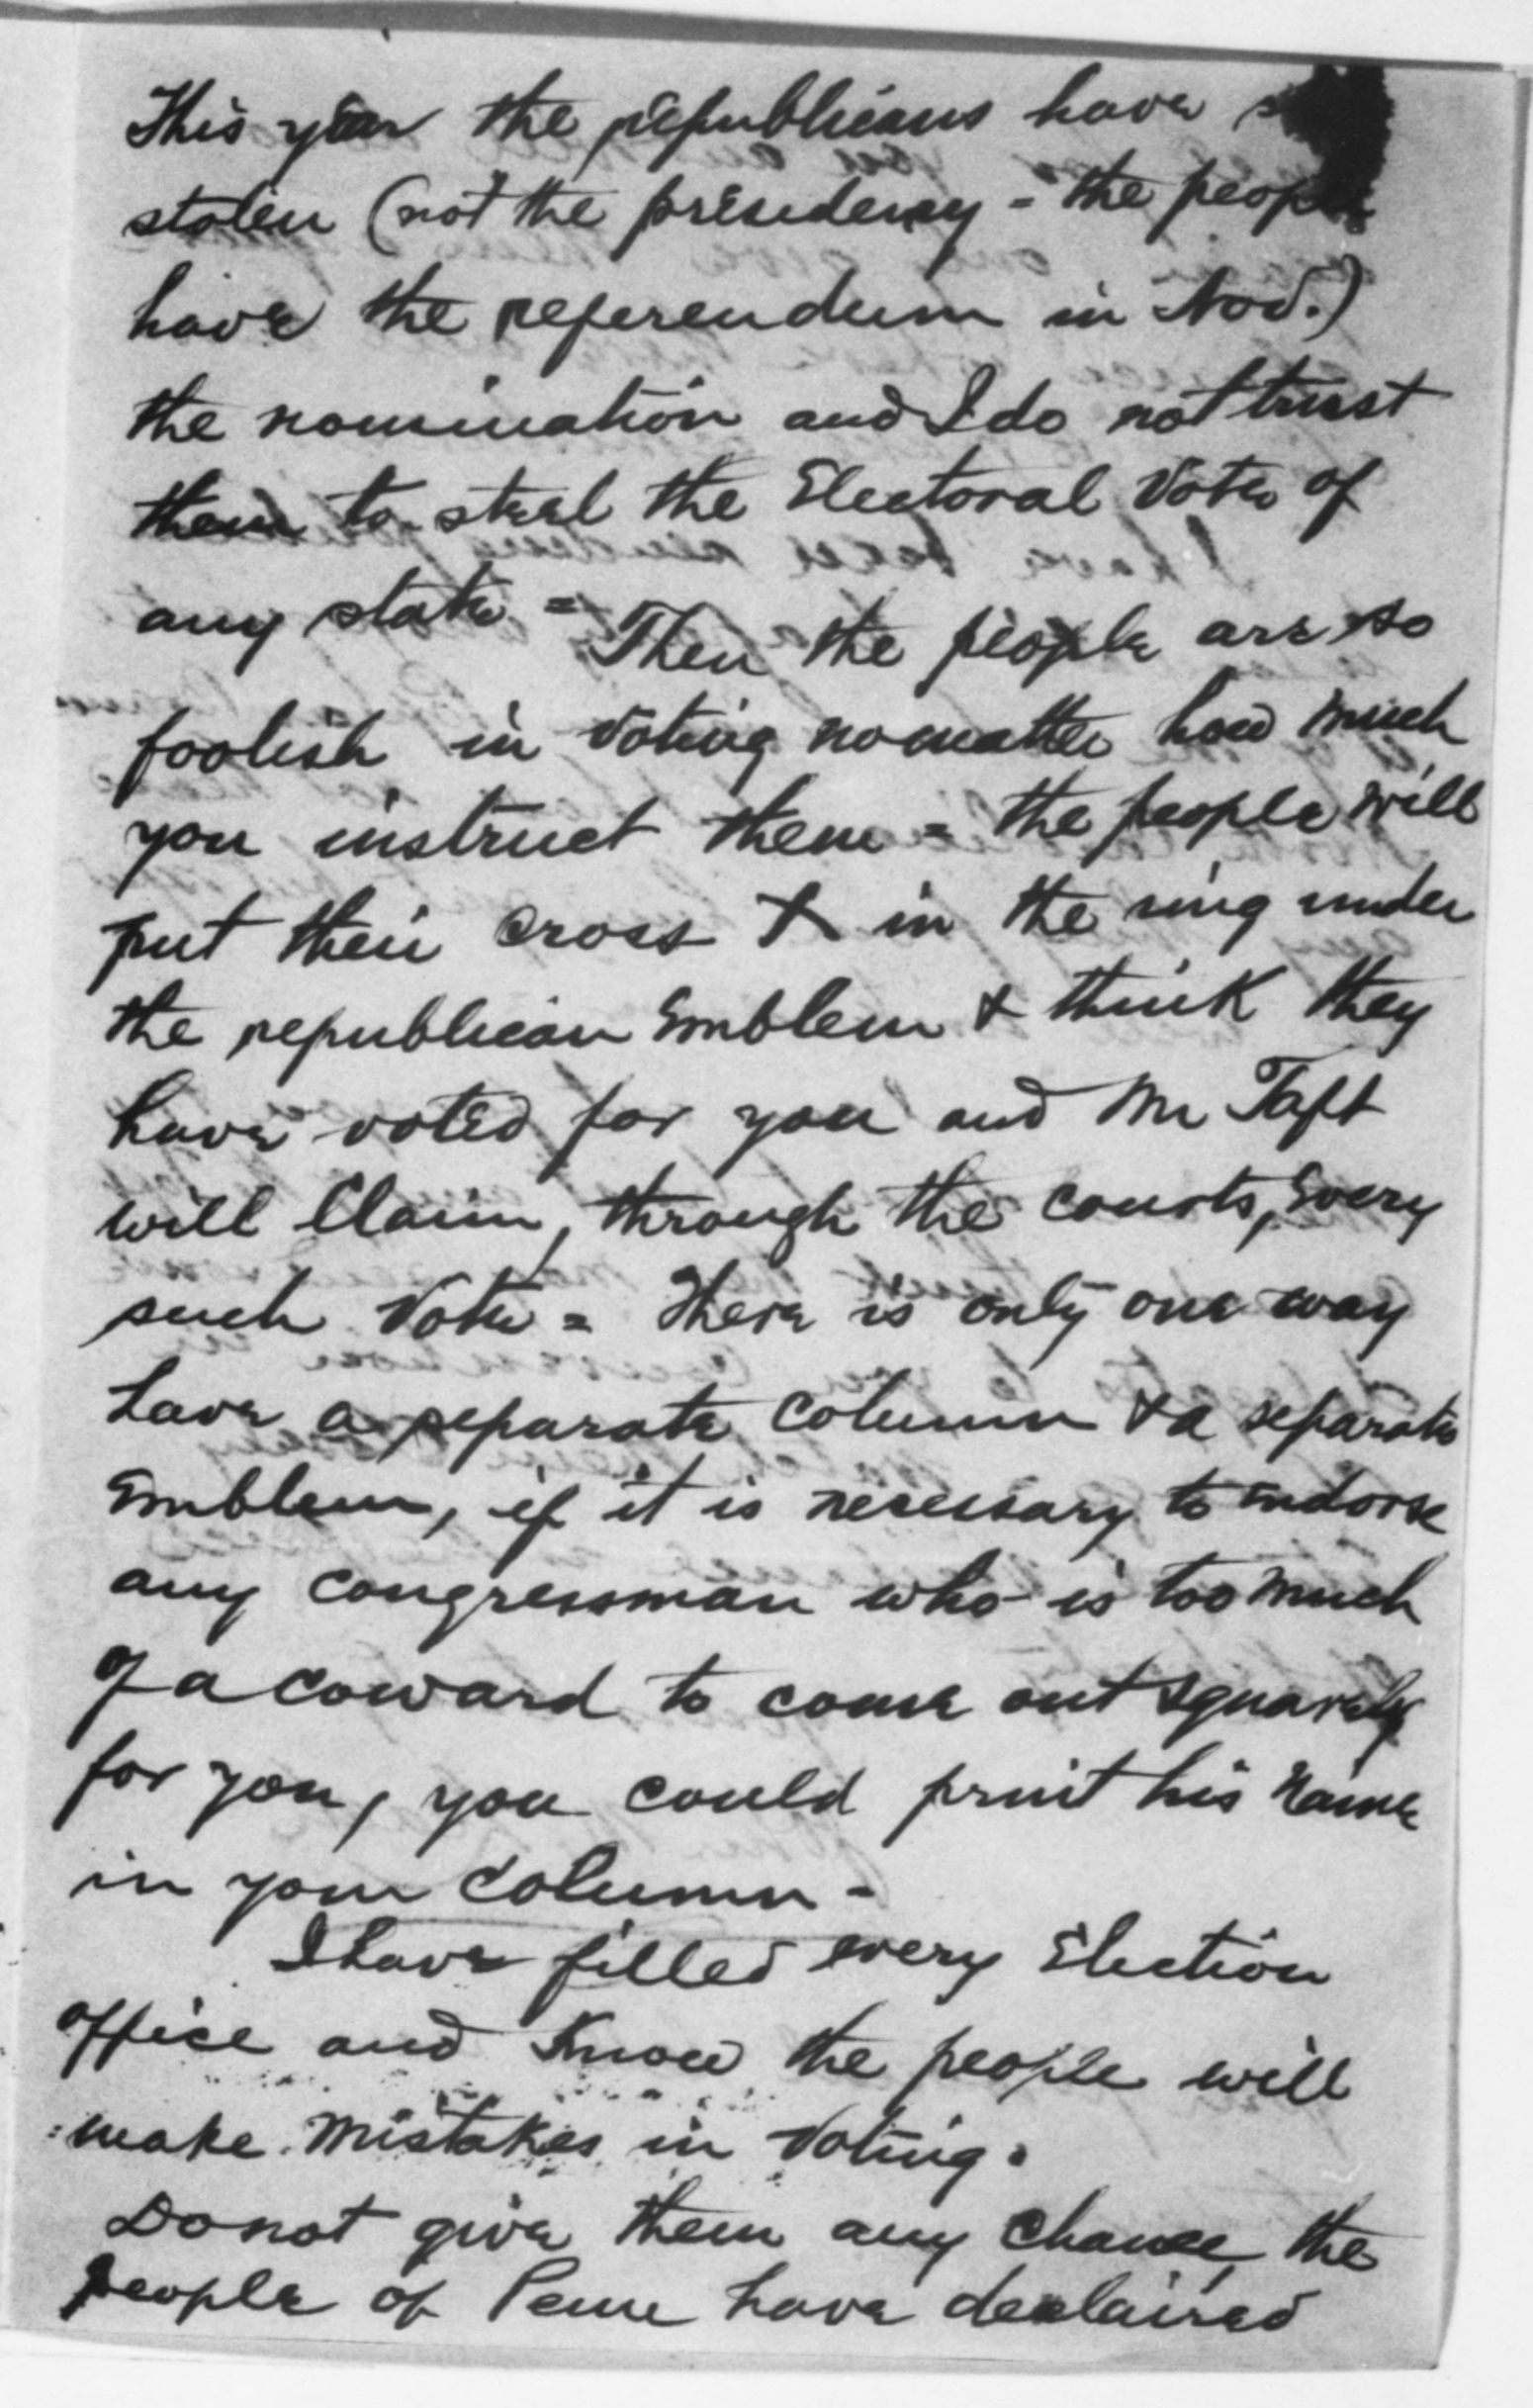 This year the republicans have
stolen (not the presidency = the people
have the referendum in Nov.)
the nomination and I do not trust
them to steal the Electoral Vote of
any state = Then the people are so
foolish in voting nomatter how much
you instruct them = the people will
put their cross X in the ring under
the republican Emblem & think they
have voted for you and Mr Taft
will Claim, through the courts, Every
such Vote = There is only one way
have a separate column & a separate
Emblem, if it is necessary to endorse
any congressman who is too much
of a coward to come out squarely
for you, you could print his name
in your column -
I have filled every Election
office and Know the people will
make mistakes in voting.
Do not give them any chance, the
people of Penn have declaired